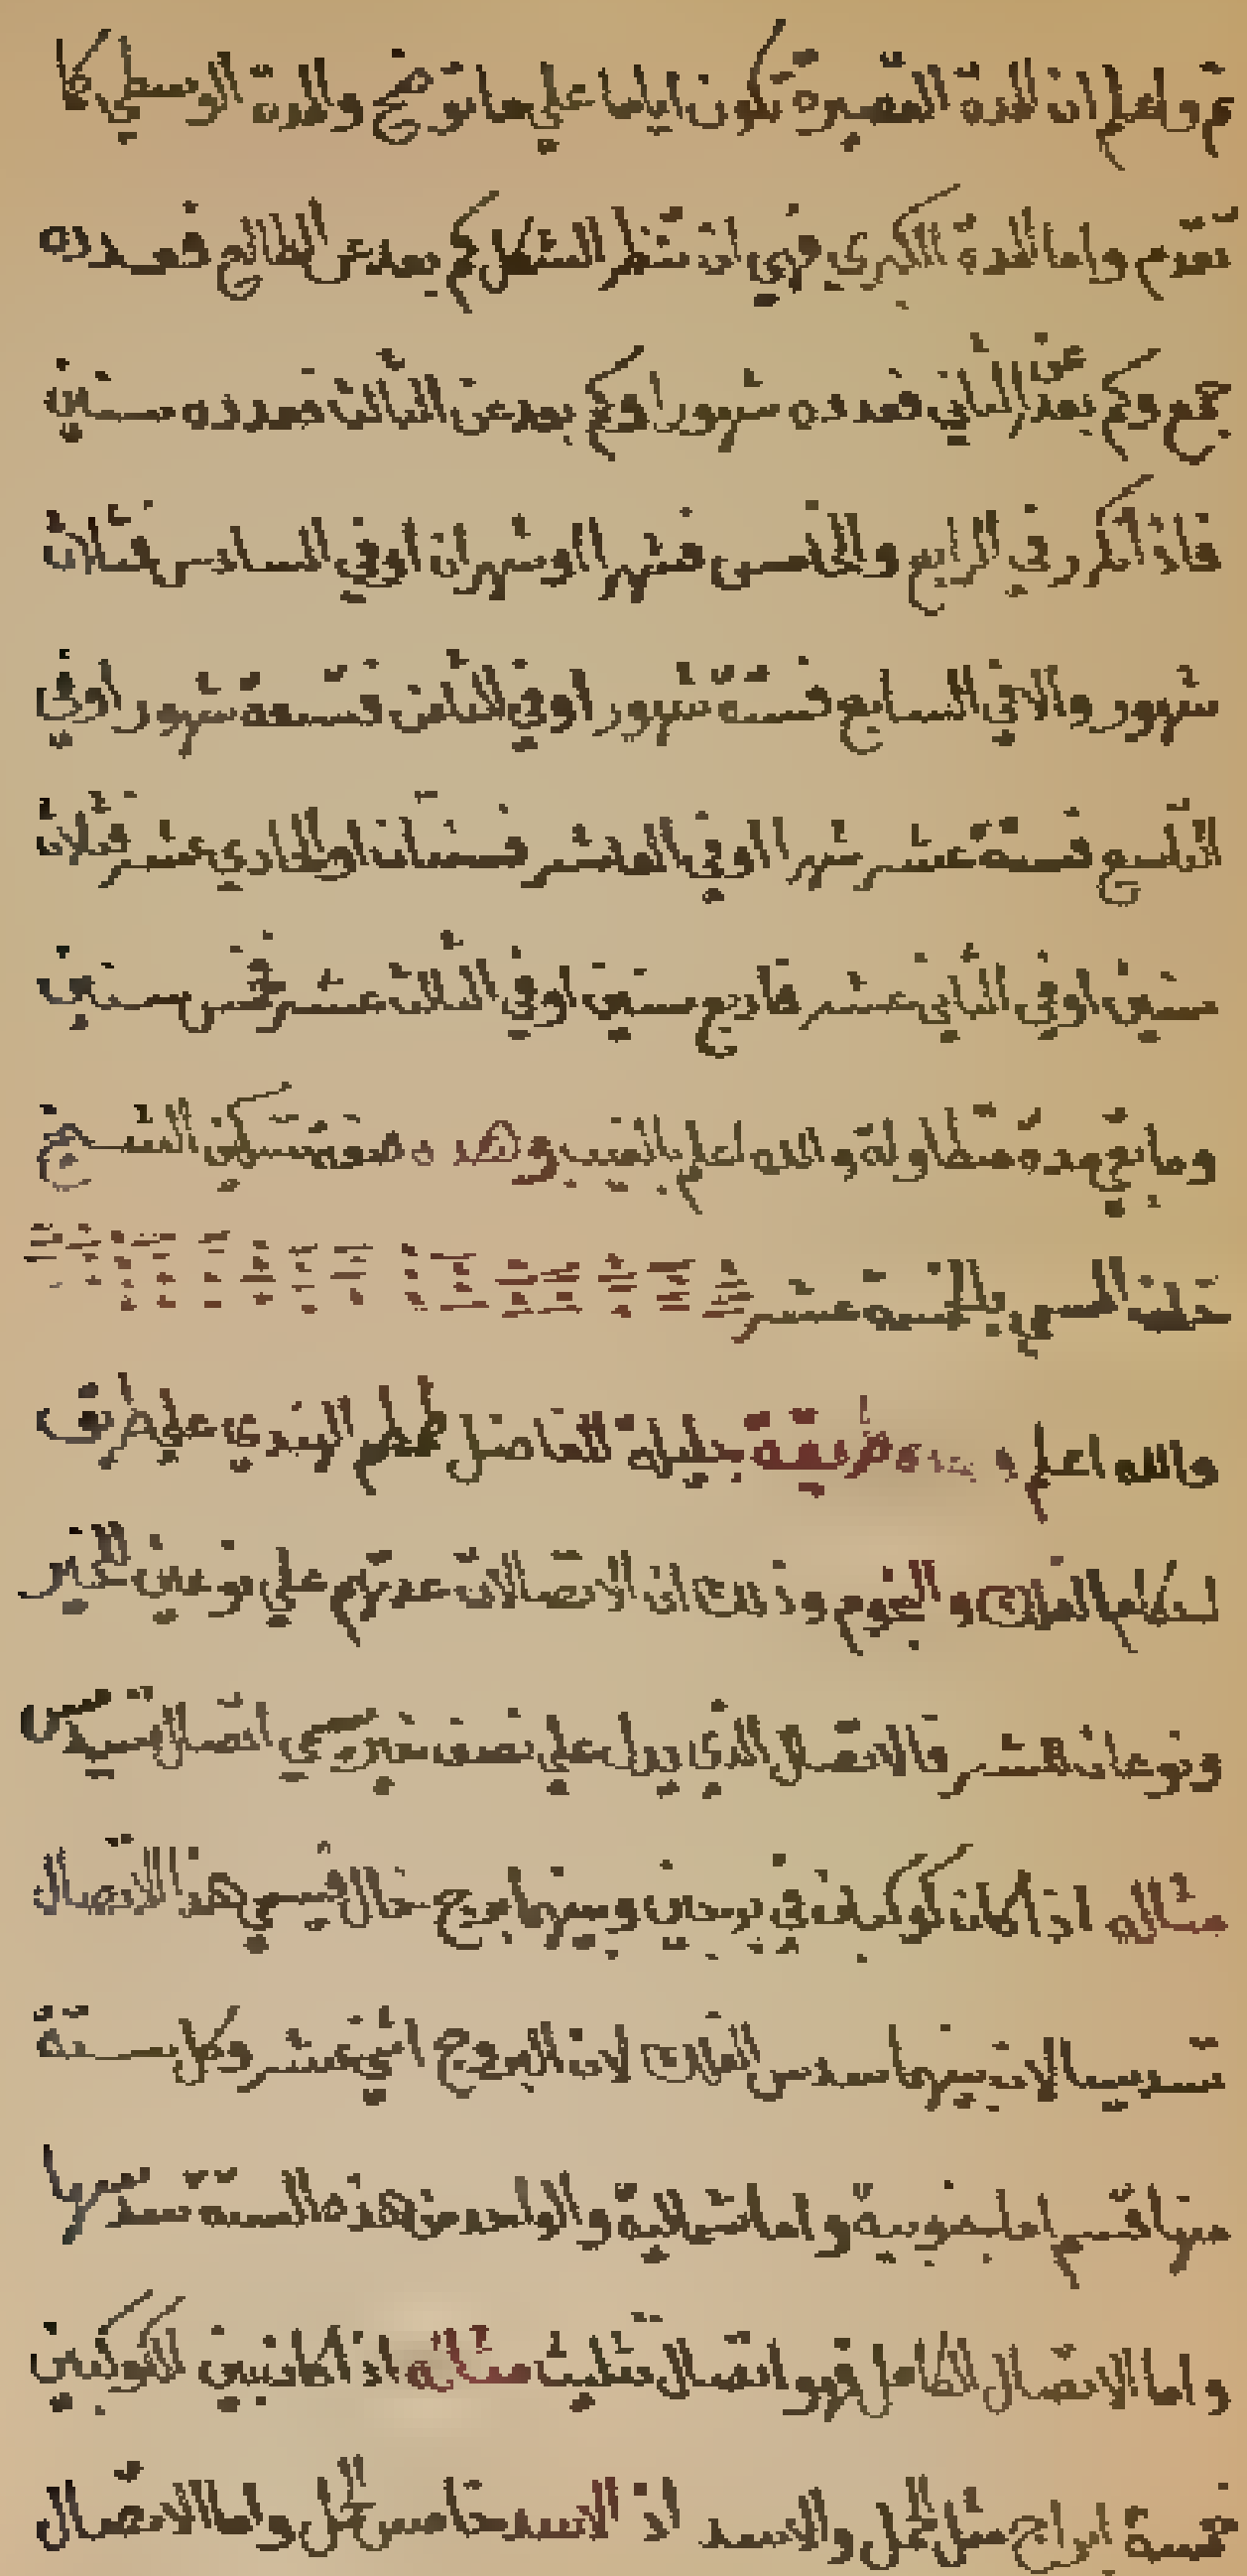 ثم واعلم ان المدة القصيرة تكون اياما على ما توضح والمدة الوسطى كما
تقدم واما المدة الكبرى فهي ان تنظر الشكل كم بعد عن الطالع فعدده
جمع وكم بعد عن الثاني فعدده شهورا وكم بعد عن الثالث فعدده سنين
فاذا تكرر في الرابع والخامس فشهرا او شهران او في السادس فثلاث
شهور والا في السابع فستة شهور او في الثامن فتسعة شهور او في
التاسع فخمسة عشر شهرا او في العاشر فسنتان او الحادي عشر فثلاث
سنين او في الثاني عشر فاربع سنين او في الثالث عشر فخمس سنين
وما بقي مدة متطاولة والله اعلم بالغيب وهذه صفة تسكين الشيخ
خلف المسمى بالخمسة عشر
والله اعلم وهذه طريقة جليلة للفاضل طمطم الهندي على طرف
لعلم الفلك والنجوم وذلك ان الاتصالات عندهم على نوعين للخير
ونوعان للشر فالاتصال الذي يدل على نصف خير سمي اتصال تسديس
مثاله اذا كان كوكبان في برجين وبينهما برج خال فيسمى هذا الاتصال
تسديسا لان بينهما سدس الفلك لان البروج اثني عشر وكل ستة
منها قسم اما جنوبية واما شمالية والواحد من هذه الستة سدسها
واما الاتصال الكامل فهو اتصال تثليث مثاله اذا كان بين الكوكبين
خمسة ابراج مثل الحمل والاسد اذ الاسد خامس الحمل واما الاتصال